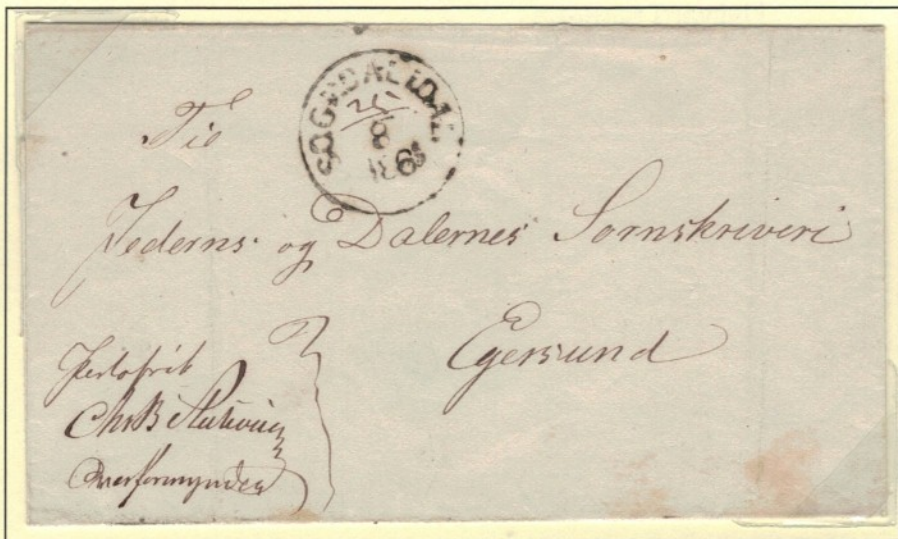 SOGNDAL I DAL.
25
8
1865
Til
Jederns og Dalernes Sornskriveri
Egersund
Portofrit
Chr B
Overformynder